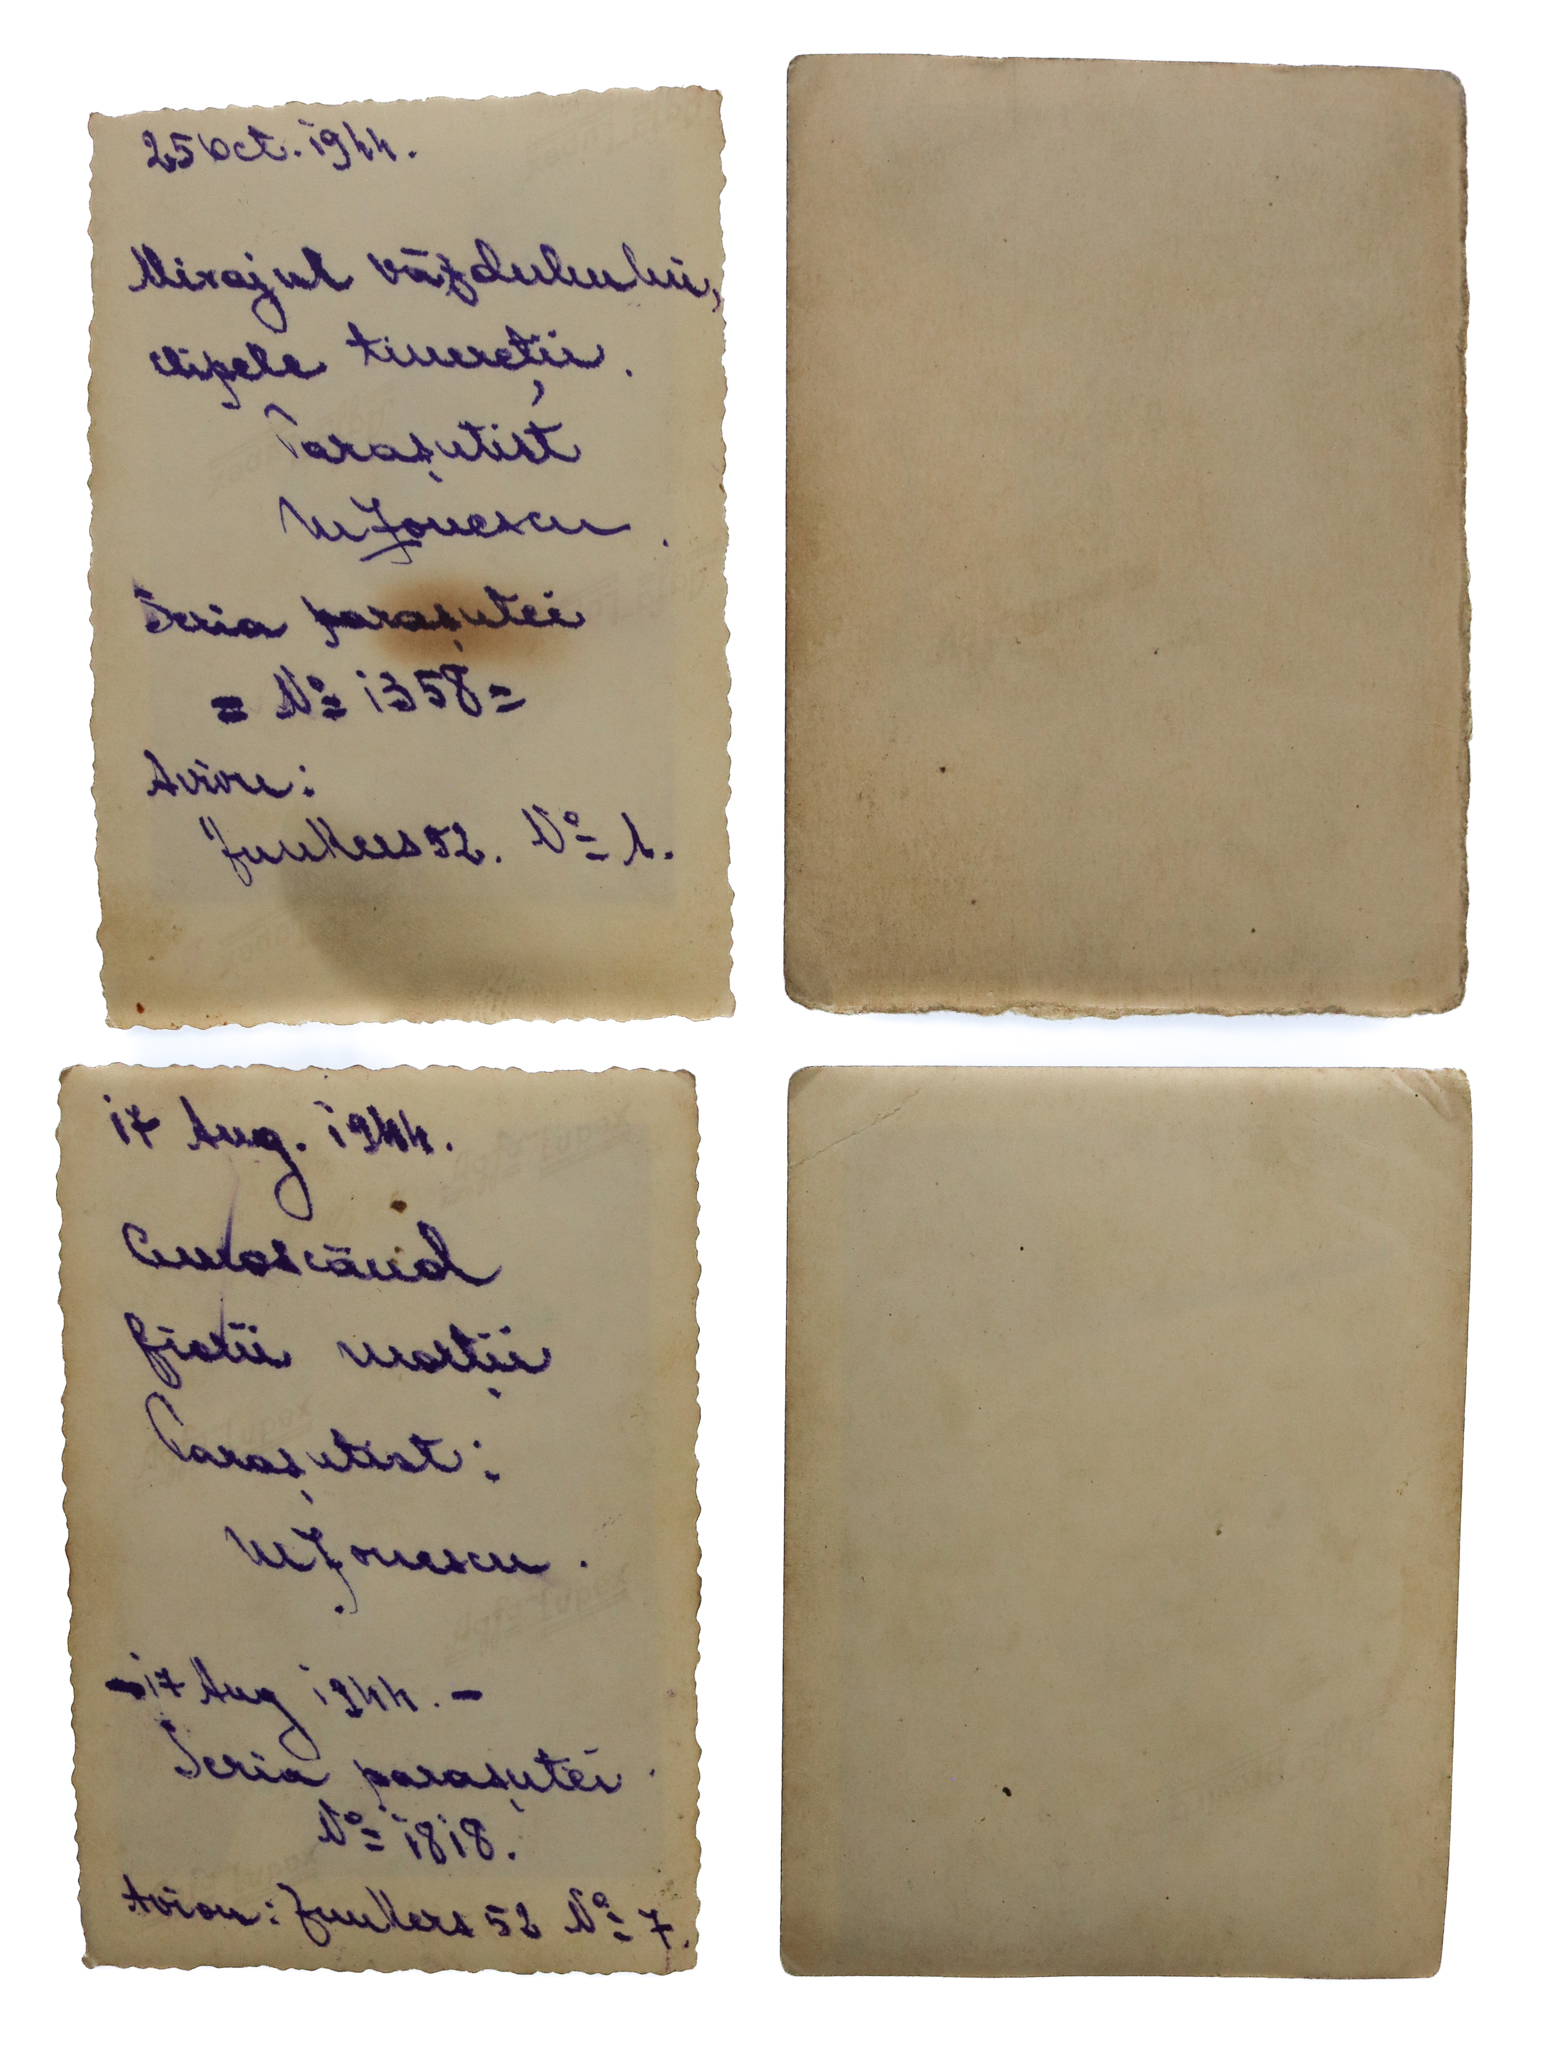 25 Oct. 1944.
Mirajul văzduhului,
clipele tinereții.
Parașutist
M Ionescu.
Seria parașutei
= No 1358 =
Avion:
Junkers 52. No 1.
17 Aug. 1944.
Cunoscând
fiorii morții
Parașutist:
M Ionescu.
- 17 Aug 1944. -
Seria parașutei.
No 1818.
Avion: Junkers 52 No 7.
Agfa Lupex
Agfa Lupex
Agfa Lupex